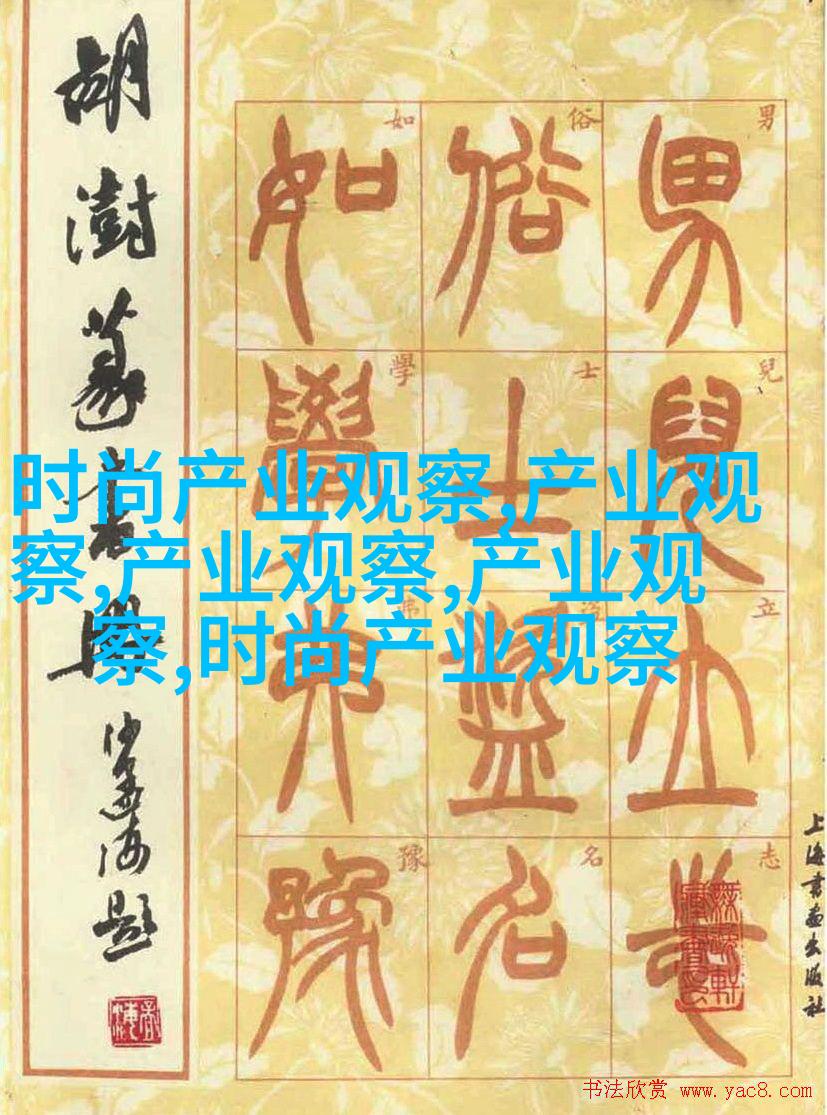 时尚产业观察,产业观
察,产业观察,产业观
察,时尚产业观察
胡澍篆書
沙孟海題
男兒立志
男兒立志
俗士盜名
俗士名
如學弗豫
如學弗豫
上海書畫出版社
书法欣赏 www.yac8.com